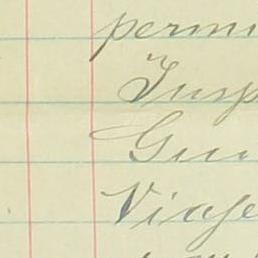 permi
Insp
Gui
Viaje